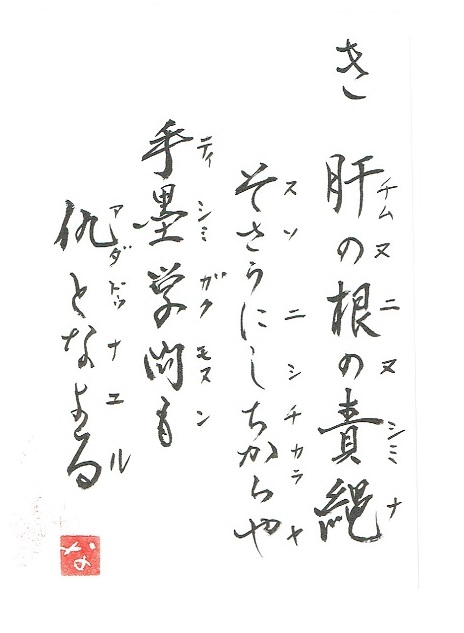 き 肝の根の責縄
チムヌニヌシミナ
そさうにしちからや
スソニシチカラヤ
手墨学問も
ティシミガクモスン
仇となよる
アダドゥナユル
な